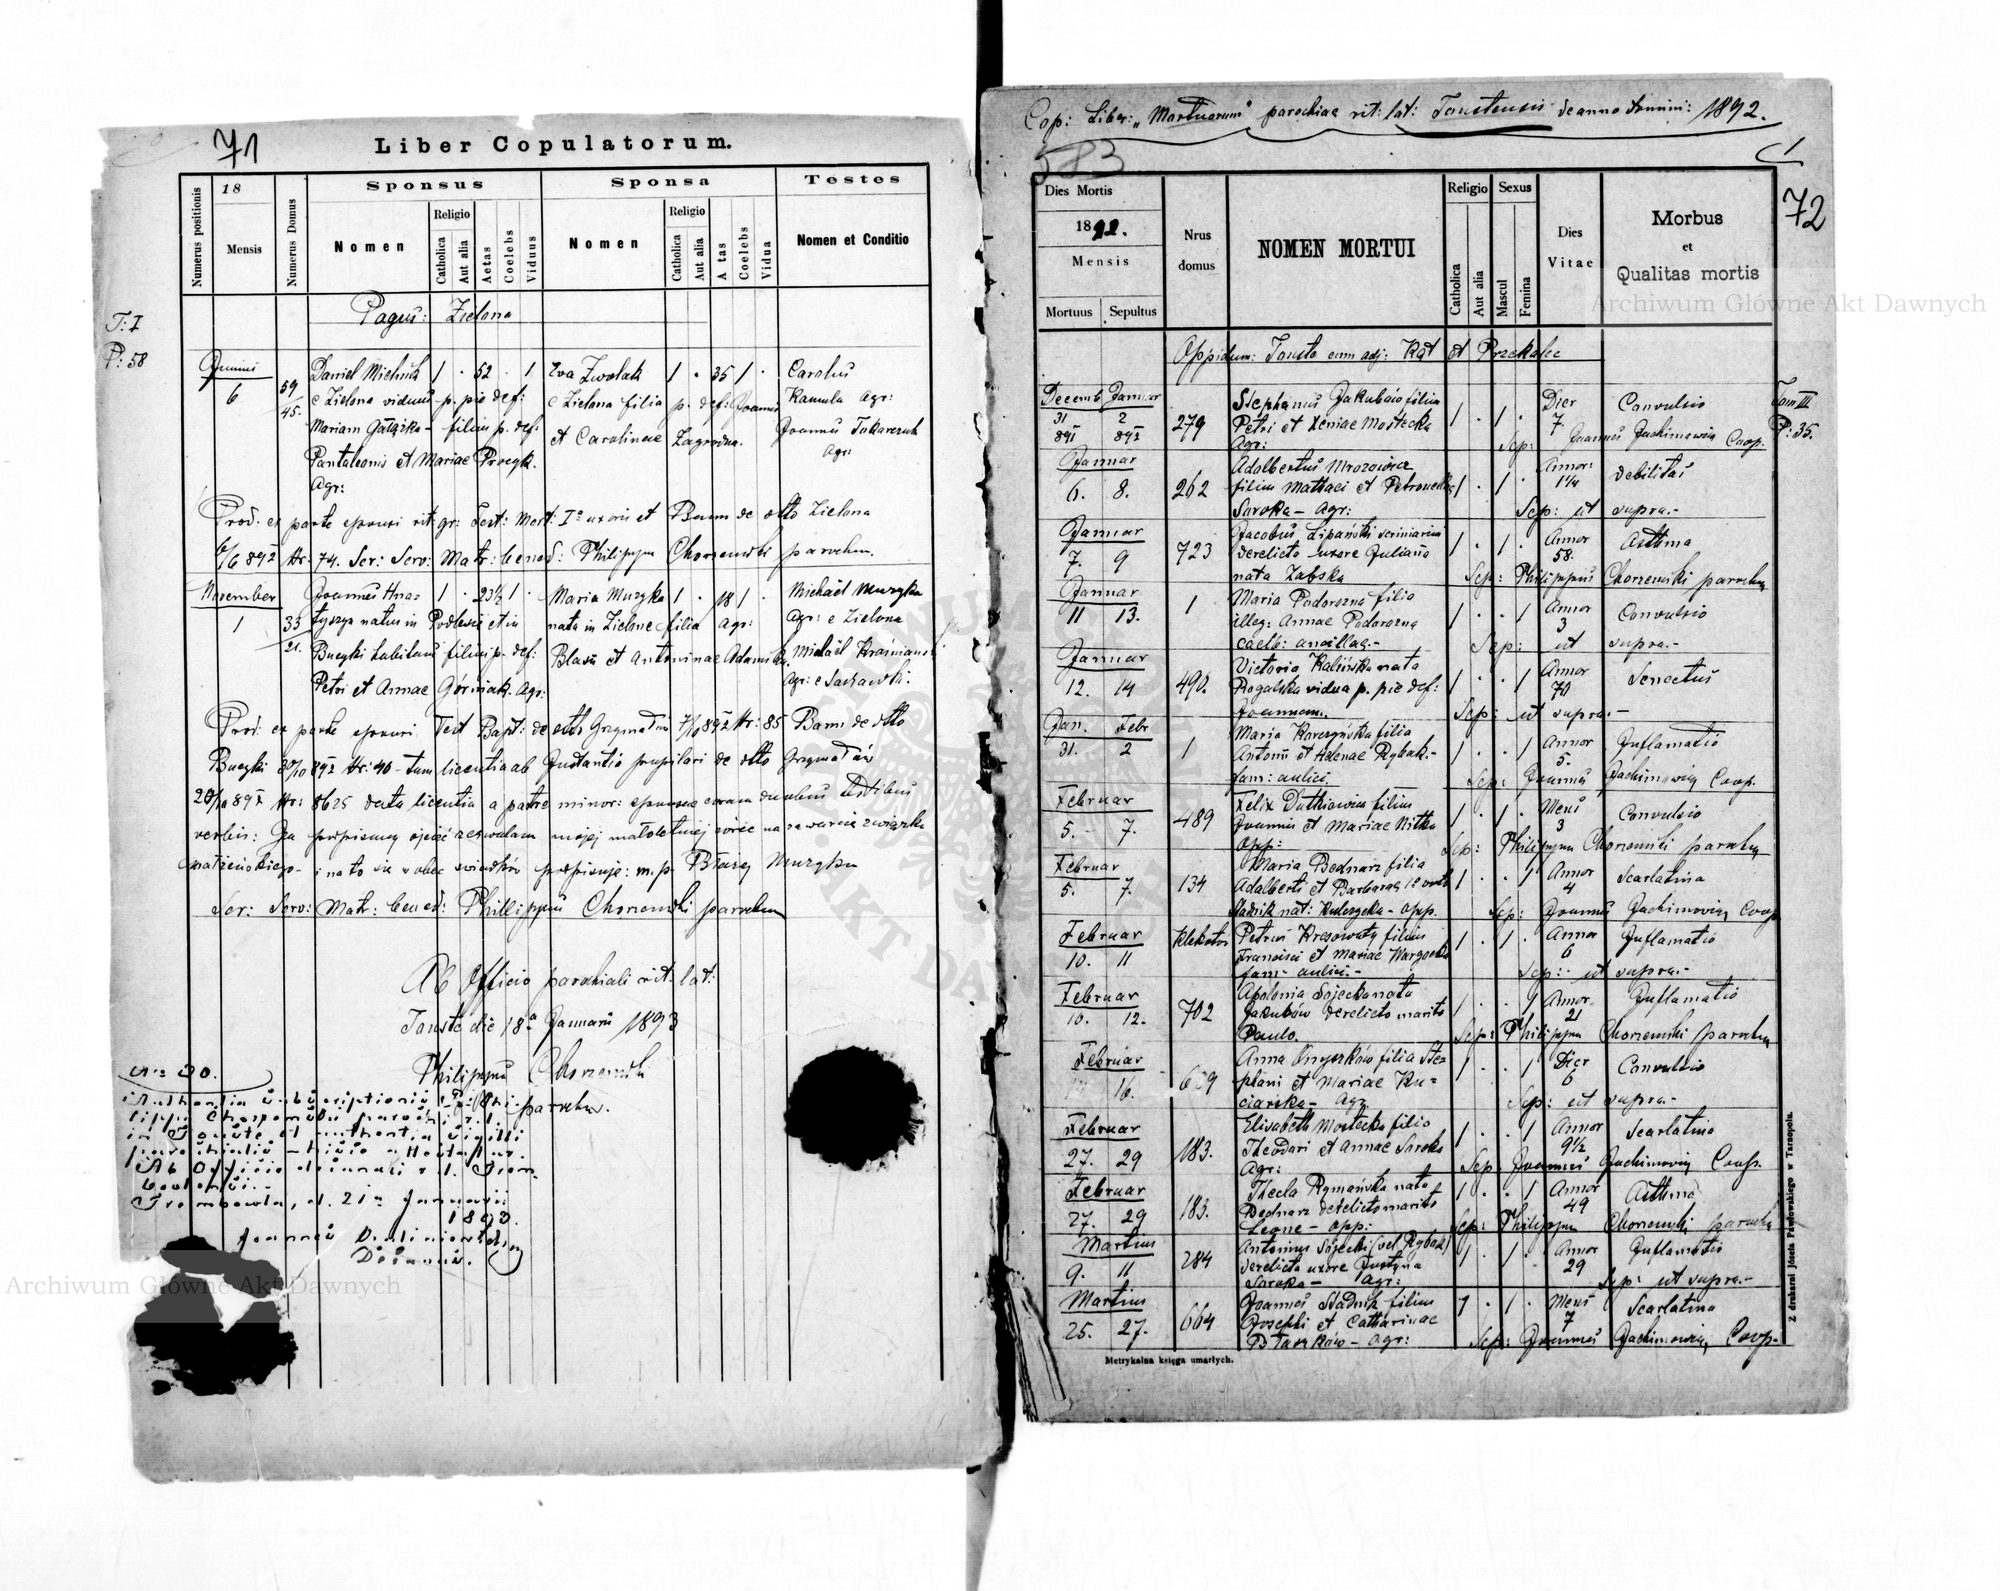 71
Liber Copulatorum.
Numerus positionis
18
Mensis
Numerus Domus
Sponsus
Nomen
Religio
Catholica
Aut alia
Aetas
Coelebs
Viduus
Sponsa
Nomen
Religio
Catholica
Aut alia
A tas
Coelebs
Vidua
Testes
Nomen et Conditio
Pagus: Zielona
T: I
P: 58
Junius
6
59
45.
Daniel Michnik 1 . 52 . 1 Eva Zwolak 1 . 35 1 . Carolus
e Zielona viduus p. pie def: e Zielona filia p. def: Joannis Kamula agr:
Mariam Gałązka - filius p. def: et Carolinae Zagrodna. Joannes Tokarczuk
Pantaleonis et Mariae agr:
Agr:
Prod: ex parte sponsi rit. gr: Test: Mort: Iª uxoris et Bann de dtto Zielona
6/6 892 Nr: 74. Ser: Serv: Matr: bened: Philippus Chorzemski parochus.
November
1
33
21.
Joannes 1 . 23½ 1 . Maria Muzyka 1 . 18 1 . Michaël Muzyka
natus in Podlesie et in nata in Zielone filia agr: agr: e Zielona
Buczki habitans filius p. def: Blasii et Antoninae Adamska. Michaël
Petri et Annae Górniak. Agr: agr: e
Prod: ex parte sponsi Test Bapt: de dtto Grzymałów 7/10 892 Nr: 85 Bann de dtto
Buczki 30/10 892 Nr: 40 - tum licentia ab Instantio pupilari de dtto Grzymałów
20/10 892 Nr: 8625 data licentia a patre minor: sponsae coram duobus testibus
verbis: Ja podpisany ojciec zezwalam mojej małoletniej córce na zawarcie związku
małżeńskiego - i na to się w obec świadków podpisuję: m. p. Błażej Muzyka
Ser: Serv: Matr: bened: Philippus Chorzemski parochus
Ab Officio parochiali rit. lat:
Touste die 18ª Januarii 1893
Philippus Chorzemski
parochus.
Nro 30.
Authentia subscriptionis Phi-
lippi Chorzemski parochi r. l.
in Touste et authentia sigilli
parochialis - hisce attestatur.
Ab Officio decanali r. l. Trem-
Trembowla, d. 21ª Januarii
1893.
Joannes
Decanus.
Cop: Liber: „Mortuorum" parochiae rit: lat: Toustensis de anno Domini: 1892.
583
1
72
Dies Mortis
1892.
Mensis
Mortuus Sepultus
Nrus domus
NOMEN MORTUI
Religio
Catholica
Aut alia
Sexus
Mascul
Femina
Dies Vitae
Morbus
et
Qualitas mortis
Archiwum Główne Akt Dawnych
Oppidum: Touste cum adj: Kąt et Przekalec
Tom III
P: 35.
Decemb Januar Stephanus Jakubów filius Dier Convulsio
31 2 279 Petri et Xeniae Mostecka 1 . 1 . 7.
891 892 Agr: Sep: Joannes Jachimowicz Coop.
Januar Adalbertus Mrozowicz Annor: debilitas
6. 8. 262 filius Mathaei et Petronellae 1 . 1 . 1¼
Saroka - Agr: Sep: ut supra.-
Januar Jacobus Lipański scriniarius Annor Asthma
7. 9 723 derelicta uxore Juliana 1 . 1 . 58.
nata Zabska Sep: Philippus Chorzemski parochus
Januar Maria Podorozna filia Annor Convulsio
11 13. 1 illeg: Annae Podorozna 1 . . 1 3
caelb: ancillae.- Sep: ut supra.-
Januar Victoria Kalińska nata Annor Senectus
12. 14 490. Rogalska vidua p. pie def: 1 . . 1 70
Joannem. Sep: ut supra.-
Jan. Febr Maria Korczyńska filia Annor Inflamatio
31. 2 1 Antonii et Helenae Rybak.- 1 . . 1 5.
fam: aulici. Sep: Joannes Jachimowicz Coop.
Februar Felix Dutkiewicz filius Mens Convulsio
5. - 7. 489 Joannis et Mariae Nitka 1 . 1 . 3
opp: Sep: Philippus Chorzemski parochus
Februar Maria Bednarz filia Annor Scarlatina
5. 7. 134 Adalberti et Barbarae 1 . . 1 4
Stadnik nat: Kulczycka - opp. Sep: Joannes Jachimowicz Coop
Februar Petrus Kresowaty filius Annor Inflamatio
10. 11 Klekotów Francisci et Mariae 1 . 1 . 6
fam- aulici.- Sep: ut supra.-
Februar Apolonia Sójecka nata Annor. Inflamatio
10. 12. 702 Jakubów derelicto marito 1 . . 1 21
Paulo. Sep: Philippus Chorzemski parochus
Februar Anna Onyszków filia Ste- Dier Convulsio
16. phani et Mariae Ku= 1 . . 1 6
ciarska - Agr. Sep: ut supra.-
Februar Elisabeth Mostecka filia Annor Scarlatina
27. 29 183. Theodori et Annae Saroka 1 . . 1 9½
Agr: Sep: Joannes Jachimowicz Coop.
Februar Thecla Rymańska nata Annor Asthma
27. 29 183. Bednarz derelicto marito 1 . . 1 49
Leone - opp: Sep: Philippus Chorzemski parochus
Martius Antonius Sójecki (vel Rybak) Annor Inflamatio
9. 11 284 derelicta uxore Justyna 1 . 1 . 29
Saroka - Agr: Sep: ut supra.-
Martius Joannes Stadnik filius Mens Scarlatina
25. 27. 664 Josephi et Catharinae 1 . 1 . 7
Błaszków - agr: Sep: Joannes Jachimowicz Coop.
Metrykalna księga umarłych.
Z drukarni Józefa Pawłowskiego w Tarnopolu.
Archiwum Główne Akt Dawnych